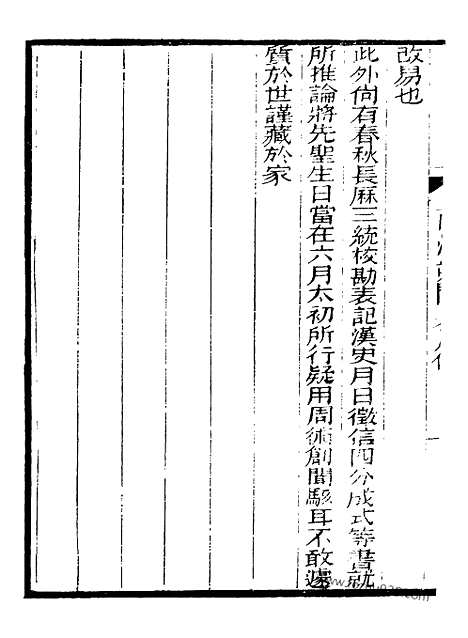 改易也
此外尙有春秋長厤三統校勘表記漢史月日徵信四分成式等書就
所推論將先聖生日當在六月太初所行疑用周術創聞駭耳不敢遽
質於世謹藏於家